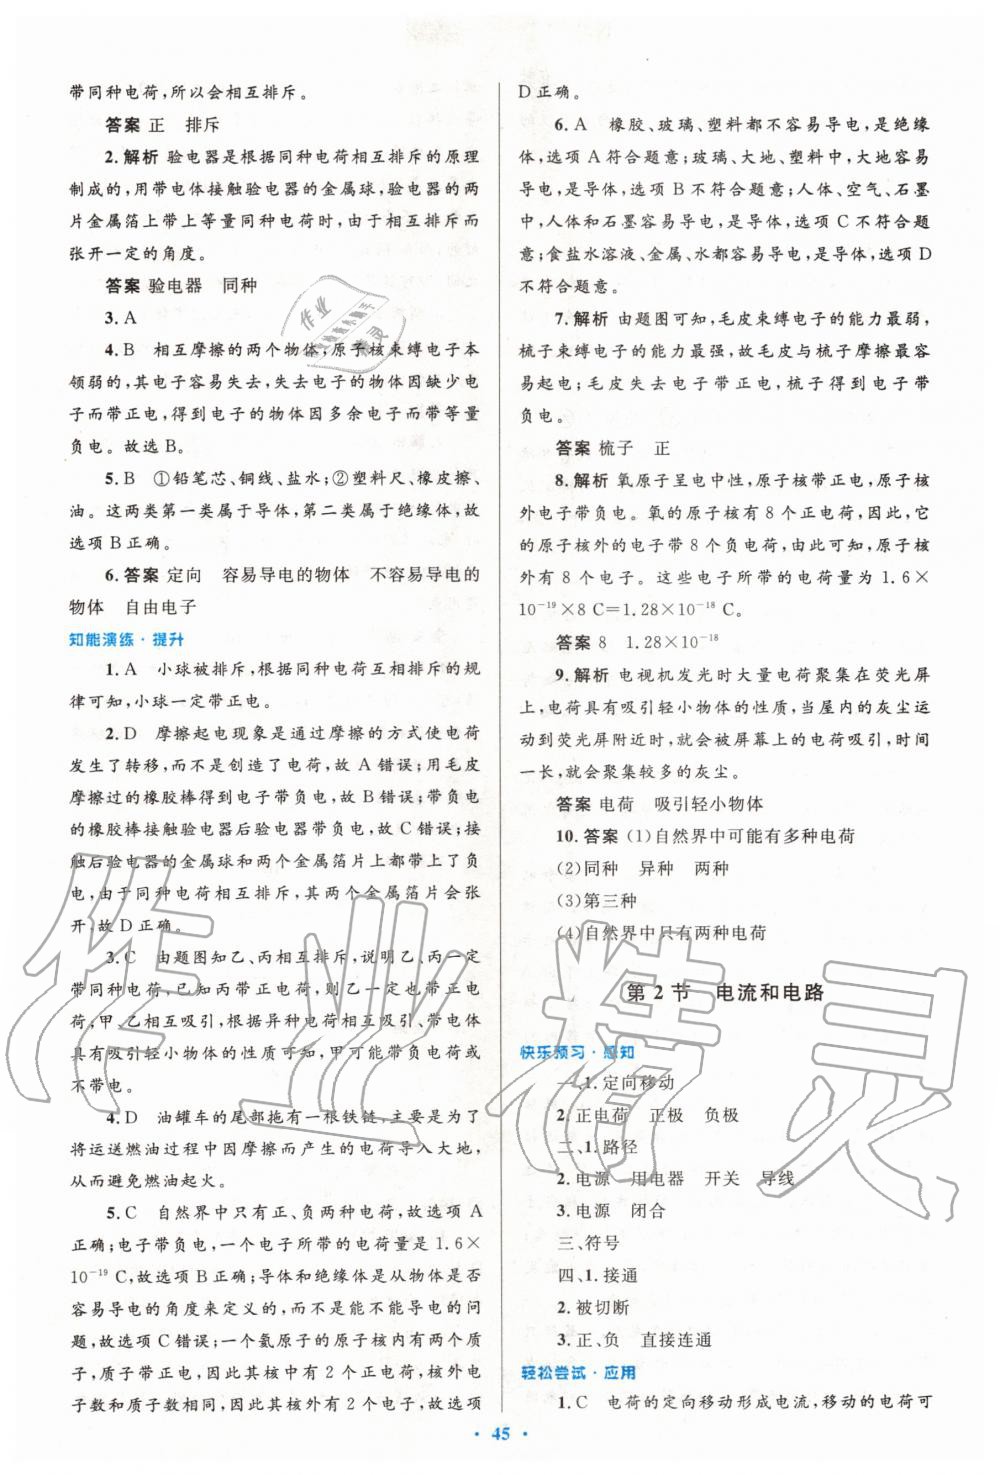 带同种电荷,所以会相互排斥。
答案 正 排斥
2.解析 验电器是根据同种电荷相互排斥的原理
制成的,用带电体接触验电器的金属球,验电器的两
片金属箔上带上等量同种电荷时,由于相互排斥而
张开一定的角度。
答案 验电器 同种
3.A
4.B 相互摩擦的两个物体,原子核束缚电子本
领弱的,其电子容易失去,失去电子的物体因缺少电
子而带正电,得到电子的物体因多余电子而带等量
负电。故选B。
5.B ①铅笔芯、铜线、盐水;②塑料尺、橡皮擦、
油。这两类第一类属于导体,第二类属于绝缘体,故
选项B正确。
6.答案 定向 容易导电的物体 不容易导电的
物体 自由电子
知能演练·提升
1.A 小球被排斥,根据同种电荷互相排斥的规
律可知,小球一定带正电。
2.D 摩擦起电现象是通过摩擦的方式使电荷
发生了转移,而不是创造了电荷,故A错误;用毛皮
摩擦过的橡胶棒得到电子带负电,故B错误;带负电
的橡胶棒接触验电器后验电器带负电,故C错误;接
触后验电器的金属球和两个金属箔片上都带上了负
电,由于同种电荷相互排斥,其两个金属箔片会张
开,故D正确。
3.C 由题图知乙、丙相互排斥,说明乙、丙一定
带同种电荷,已知丙带正电荷,则乙一定也带正电
荷,甲、乙相互吸引,根据异种电荷相互吸引、带电体
具有吸引轻小物体的性质可知,甲可能带负电荷或
不带电。
4.D 油罐车的尾部拖有一根铁链,主要是为了
将运送燃油过程中因摩擦而产生的电荷导入大地,
从而避免燃油起火。
5.C 自然界中只有正、负两种电荷,故选项A
正确;电子带负电,一个电子所带的电荷量是1.6×
10⁻¹⁹ C,故选项B正确;导体和绝缘体是从物体是否
容易导电的角度来定义的,而不是能不能导电的问
题,故选项C错误;一个氦原子的原子核内有两个质
子,质子带正电,因此其核中有2个正电荷,核外电
子数和质子数相同,因此其核外有2个电子,故选项
D正确。
6.A 橡胶、玻璃、塑料都不容易导电,是绝缘
体,选项A符合题意;玻璃、大地、塑料中,大地容易
导电,是导体,选项B不符合题意;人体、空气、石墨
中,人体和石墨容易导电,是导体,选项C不符合题
意;食盐水溶液、金属、水都容易导电,是导体,选项D
不符合题意。
7.解析 由题图可知,毛皮束缚电子的能力最弱,
梳子束缚电子的能力最强,故毛皮与梳子摩擦最容
易起电;毛皮失去电子带正电,梳子得到电子带
负电。
答案 梳子 正
8.解析 氧原子呈电中性,原子核带正电,原子核
外电子带负电。氧的原子核有8个正电荷,因此,它
的原子核外的电子带8个负电荷,由此可知,原子核
外有8个电子。这些电子所带的电荷量为1.6×
10⁻¹⁹×8 C=1.28×10⁻¹⁸ C。
答案 8 1.28×10⁻¹⁸
9.解析 电视机发光时大量电荷聚集在荧光屏
上,电荷具有吸引轻小物体的性质,当屋内的灰尘运
动到荧光屏附近时,就会被屏幕上的电荷吸引,时间
一长,就会聚集较多的灰尘。
答案 电荷 吸引轻小物体
10.答案 (1)自然界中可能有多种电荷
(2)同种 异种 两种
(3)第三种
(4)自然界中只有两种电荷
第2节 电流和电路
快乐预习·感知
一、1.定向移动
2.正电荷 正极 负极
二、1.路径
2.电源 用电器 开关 导线
3.电源 闭合
三、符号
四、1.接通
2.被切断
3.正、负 直接连通
轻松尝试·应用
1.C 电荷的定向移动形成电流,移动的电荷可
• 45 •
作业精灵